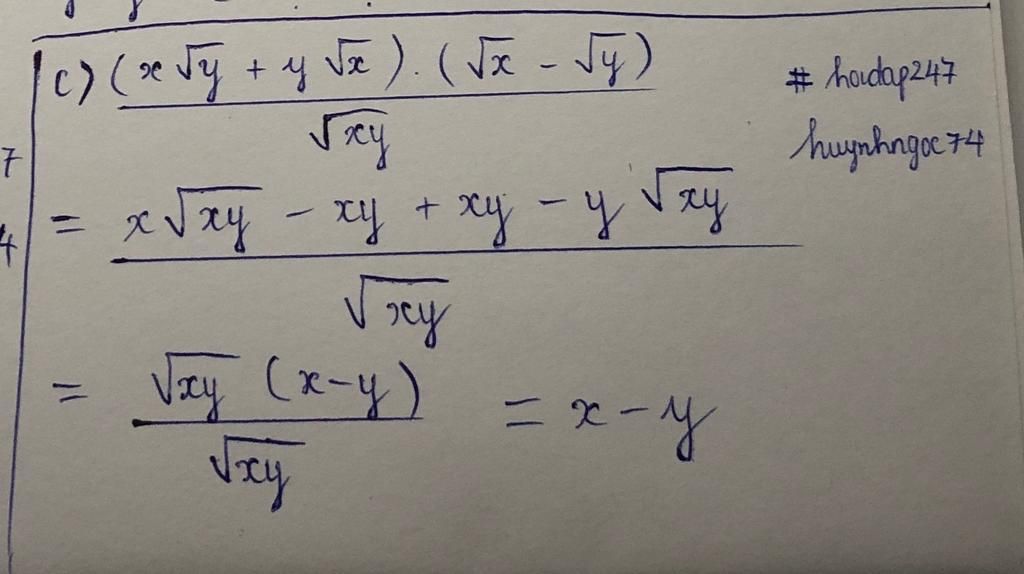 c) (x√y + y√x).(√x - √y) / √xy
# hoidap247
huynhngoc74
7
= x√xy - xy + xy - y√xy / √xy
4
= √xy (x-y) / √xy = x - y